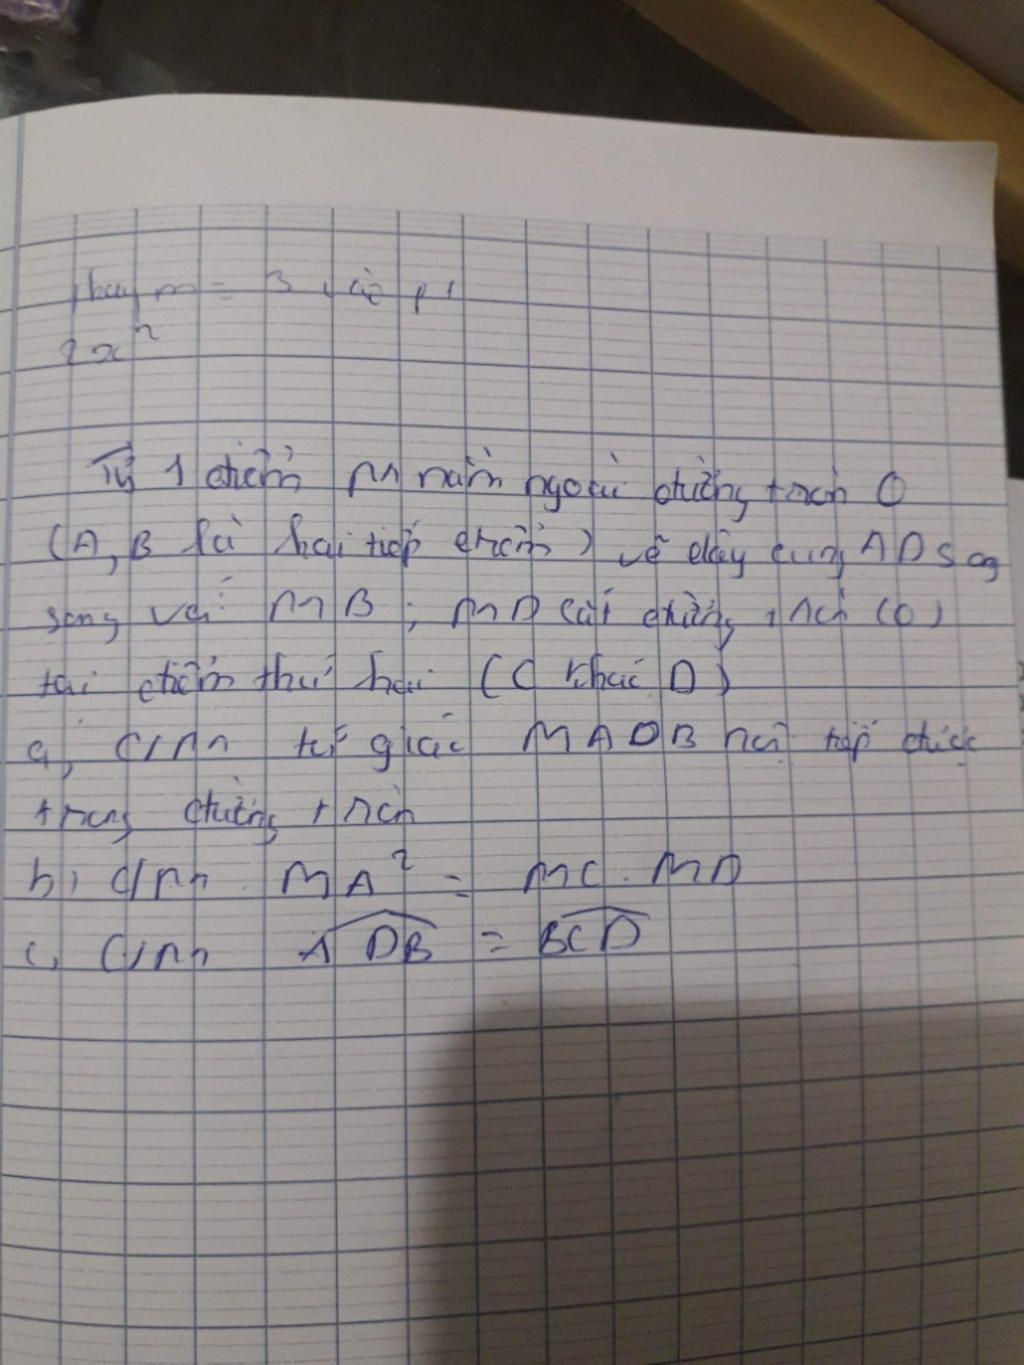 thay m = 3 vào pt
2x²
Từ 1 điểm M nằm ngoài đường tròn O
(A, B là hai tiếp điểm) vẽ dây cung AD Sog
song với MB; MD cắt đường tròn (O)
tại điểm thứ hai (C khác D)
a, C/m tứ giác MAOB nội tiếp được
trong đường tròn
b, C/m MA² = MC . MD
c, C/m ADB = BCD